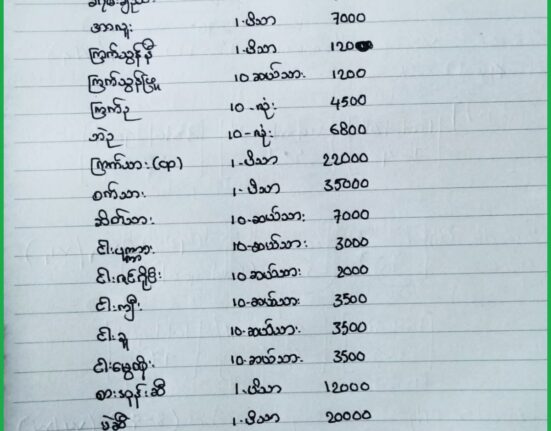 အာလူး ၁-ပိဿာ 7000
ကြက်သွန်နီ 1-ပိဿာ 120
ကြက်သွန်ဖြူ 10 ဆယ်သား 1200
ကြက်ဥ 10-လုံး 4500
ဘဲဥ 10-လုံး 6800
ကြက်သား (cp) 1-ပိဿာ 22000
ဝက်သား 1-ပိဿာ 35000
ဆိတ်သား 10-ဆယ်သား 7000
ငါးပုဏ္ဏား 10-ဆယ်သား 3000
ငါး 10 ဆယ်သား 2000
ငါးကျီး 10-ဆယ်သား 3500
ငါးခူ 10-ဆယ်သား 3500
ငါးမွေထိုး 10-ဆယ်သား 3500
စားအုန်းဆီ 1-ပိဿာ 12000
ပဲဆီ 1-ပိဿာ 20000